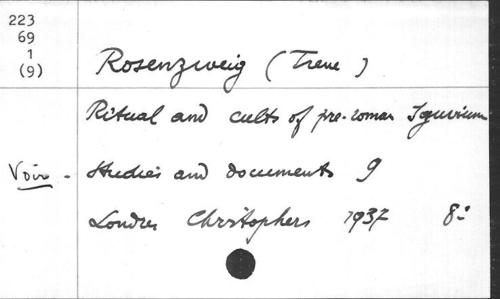 223
69
1
(9)
Rosenzweig (Irene)
Ritual and cults of pre-roman Iguvium
Voir - Studies and documents 9
Londres Christophers 1937 8°